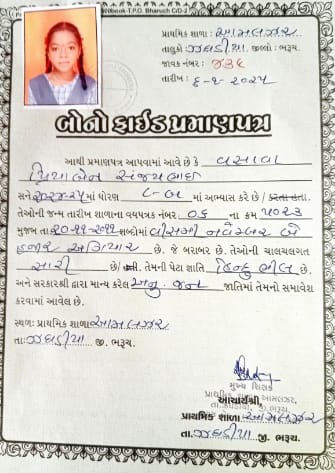 પ્રાથમિક શાળા : આમલઝર
તાલુકો ઝઘડીયા જીલ્લો : ભરૂચ.
જાવક નંબર : ૪૩૬
તારીખ : ૬-૧-૨૦૨૫
બોનોફાઈડ પ્રમાણપત્ર
આથી પ્રમાણપત્ર આપવામાં આવે છે કે વસાવા
પ્રિયાબેન સંજયભાઈ
સને ૨૦૨૪-૨૫ માં ધોરણ ૮-બ માં અભ્યાસ કરે છે / કરતા હતા.
તેઓની જન્મ તારીખ શાળાના વયપત્રક નંબર : ૦૬ ના ક્રમ ૫૦૨૩
મુજબ તા ૨૦-૧૧-૨૦૧૧ શબ્દોમાં વીસમી નવેમ્બર બે
હજાર અગિયાર છે. જે બરાબર છે. તેઓની ચાલચલગત
સારી છે/ હતી. તેમની પેટા જાતિ હિન્દુ ભીલ છે.
અને સરકારશ્રી દ્વારા માન્ય કરેલ અનુ. જન જાતિમાં તેમનો સમાવેશ
કરવામાં આવેલ છે.
સ્થળ: પ્રાથમિક શાળા આમલઝર
તા: ઝઘડીયા જી. ભરૂચ.
મુખ્ય શિક્ષક
આચાર્યશ્રી,
પ્રાથમિક શાળા આમલઝર
તા. ઝઘડીયા જી. ભરૂચ